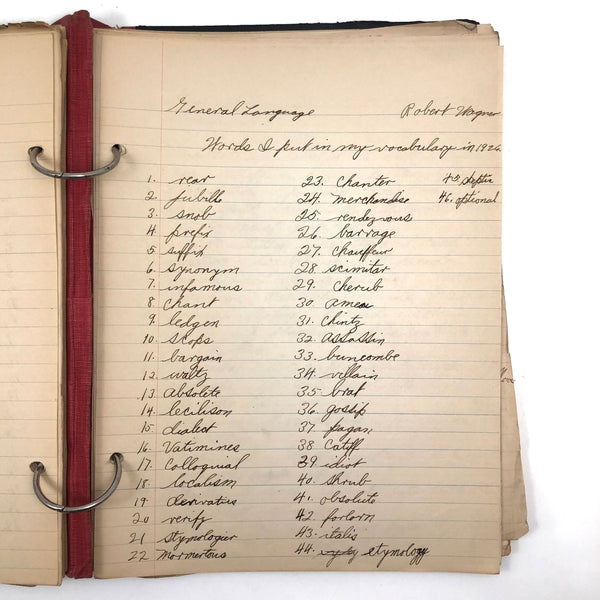 General Language Robert Wagner
Words I put in my vocabulary in 1926
1. rear
2. jubille
3. snob
4. prefix
5. suffix
6. synonym
7. infamous
8. chant
9. ledgen
10. scops
11. bargain
12. waltz
13. Absolete
14. lecilison
15. dialect
16. Vatimines
17. Colloquial
18. localism
19. derivatius
20 verify
21 Stymologier
22 Mormertous
23. Chanter
24. merchandise
25. rendezvous
26. barrage
27. Chauffeur
28. scimitar
29. Cherub
30. amen
31. Chintz
32. Assassin
33. buncombe
34. villain
35. brat
36. gossip
37. pagan
38. Catiff
39 idiot
40. shrub
41. obsolute
42. forlorn
43. italis
44. etymology
45. skeptic
46. optional